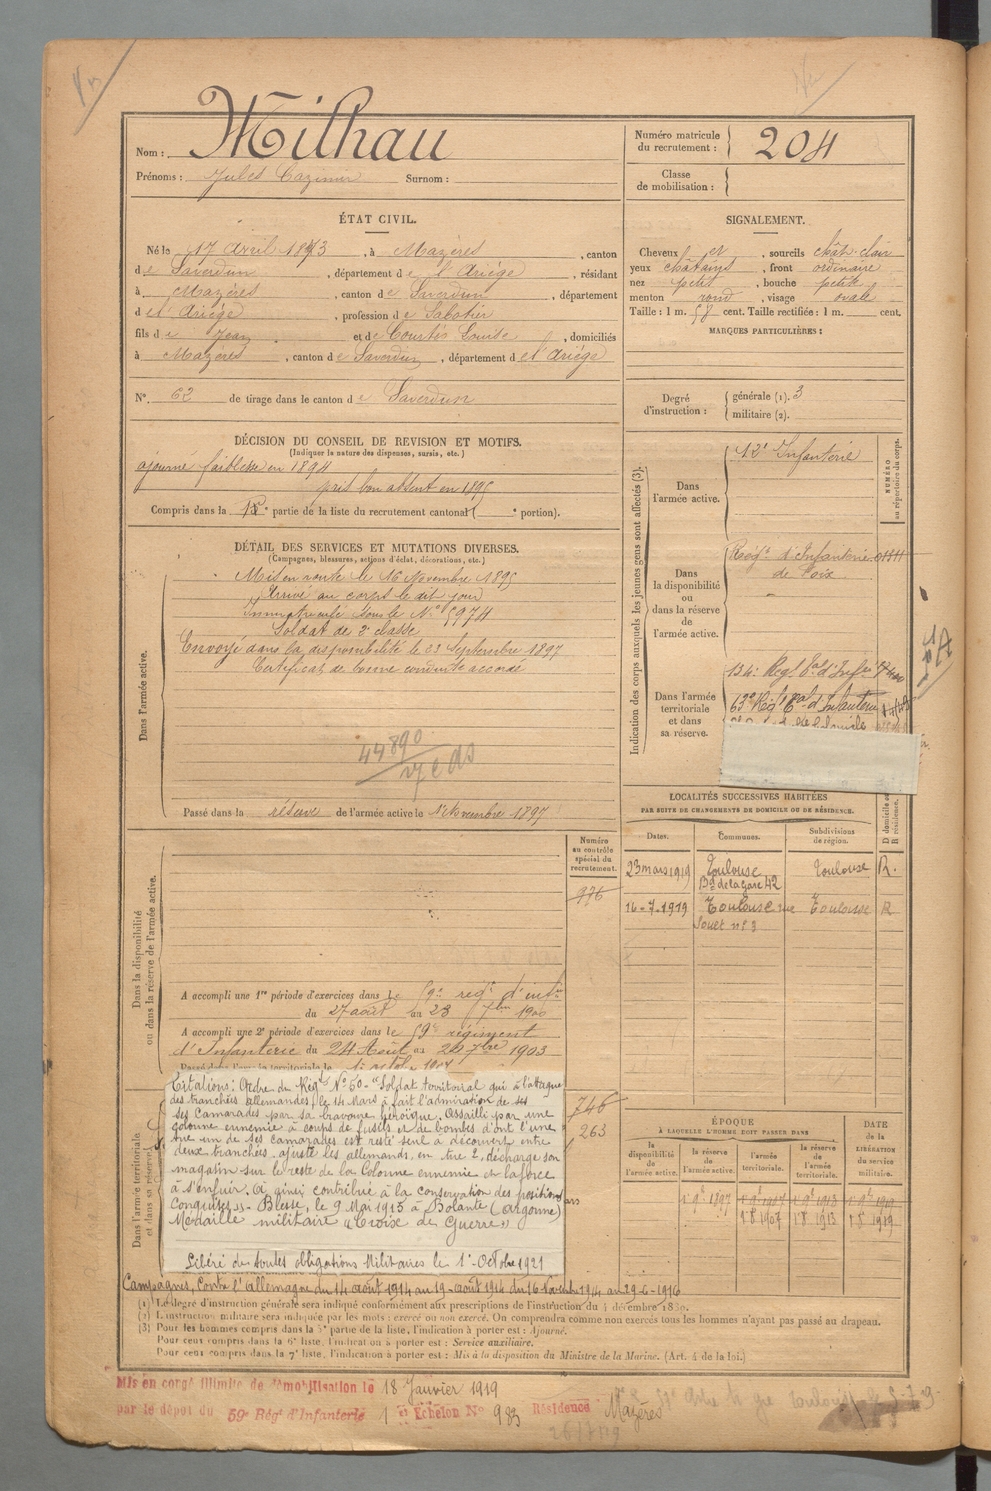 Nom : Milhau
Prénoms : Jules Cazimir Surnom :
Numéro matricule du recrutement : 204
Classe de mobilisation :
ÉTAT CIVIL.
Né le 17 Avril 1873, à Mazères, canton
de Saverdun, département de l'Ariége, résidant
à Mazères, canton de Saverdun, département
de l'Ariége, profession de Sabotier
fils de Jean et de Courtés Louise, domiciliés
à Mazères, canton de Saverdun, département de l'Ariége
N° 62 de tirage dans le canton de Saverdun
SIGNALEMENT.
Cheveux et sourcils chât-clair
yeux châtains, front ordinaire
nez petit, bouche petite
menton rond, visage ovale
Taille : 1 m. 58 cent. Taille rectifiée : 1 m. cent.
MARQUES PARTICULIÈRES :
Degré d'instruction : générale (1). 3
militaire (2).
DÉCISION DU CONSEIL DE REVISION ET MOTIFS.
(Indiquer la nature des dispenses, sursis, etc.)
ajourné faiblesse en 1894
pris bon absent en 1895
Compris dans la partie de la liste du recrutement cantonal ( portion).
DÉTAIL DES SERVICES ET MUTATIONS DIVERSES.
(Campagnes, blessures, actions d'éclat, décorations, etc.)
Dans l'armée active.
Mis en route le 16 Novembre 1895
Arrivé au corps le dit jour
Immatriculé sous le N° 5974
Soldat de 2e classe
Envoyé dans la disponibilité le 23 Septembre 1897
Certificat de bonne conduite accordé
44890
Passé dans la réserve de l'armée active le 1er Novembre 1897
Indication des corps auxquels les jeunes gens sont affectés (3).
NUMÉRO au répertoire du corps.
Dans l'armée active.
12e Infanterie
Dans la disponibilité ou dans la réserve de l'armée active.
Regt d'Infanterie
de Foix
Dans l'armée territoriale et dans sa réserve.
134e Regt tal d'Infie
63e Regt tal d'Infanterie
LOCALITÉS SUCCESSIVES HABITÉES
PAR SUITE DE CHANGEMENTS DE DOMICILE OU DE RÉSIDENCE.
Dates. Communes. Subdivisions de région. D domicile R résidence.
23 mars 1919 Toulouse Bd de la gare 42 Toulouse R.
16-7-1919 Toulouse rue Toulouse R
n° 3
Dans la disponibilité ou dans la réserve de l'armée active.
Numéro au contrôle spécial du recrutement.
976
A accompli une 1re période d'exercices dans le 59e regt d'infie
du 27 août au 23 7bre 1900
A accompli une 2e période d'exercices dans le 59e régiment
d'Infanterie du 24 Août au 20 7bre 1903
Dans l'armée territoriale et dans sa réserve.
746
263
Citations : Ordre du Régt N° 60 - "Soldat territorial qui à l'attaque
des tranchées allemandes, le 14 Mars a fait l'admiration de ses
ses camarades par sa bravoure héroïque. Assailli par une
colonne ennemie à coups de fusils et de bombes dont l'une
tue un de ses camarades est resté seul à découvert entre
deux tranchées, ajuste les allemands, en tue 2, décharge son
magasin sur le reste de la Colonne ennemie et la force
à s'enfuir. A ainsi contribué à la conservation des positions
conquises" - Blessé, le 9 Mai 1915 à Bolante (Argonne)
Médaille militaire "Croix de Guerre"
Libéré de toutes obligations Militaires le 1er Octobre 1921
Campagnes, Contre l'allemagne du 14 août 1914 au 19 août 1914 du 16 Novembre 1914 au 29-6-1916
ÉPOQUE
À LAQUELLE L'HOMME DOIT PASSER DANS
la disponibilité de l'armée active. la réserve de l'armée active. l'armée territoriale. la réserve de l'armée territoriale.
DATE de la LIBÉRATION du service militaire.
1er 9bre 1897 1er 9bre 1907 1er 9bre 1913 1er 9bre 1919
1er 8 1907 1er 8 1913 1er 5 1919
(1) Le degré d'instruction générale sera indiqué conformément aux prescriptions de l'instruction du 4 décembre 1889.
(2) L'instruction militaire sera indiquée par les mots : exercé ou non exercé. On comprendra comme non exercés tous les hommes n'ayant pas passé au drapeau.
(3) Pour les hommes compris dans la 5e partie de la liste, l'indication à porter est : Ajourné.
Pour ceux compris dans la 6e liste, l'indication à porter est : Service auxiliaire.
Pour ceux compris dans la 7e liste, l'indication à porter est : Mis à la disposition du Ministre de la Marine. (Art. 4 de la loi.)
Mis en congé illimité de démobilisation le 18 Janvier 1919
par le dépôt du 59e Régt d'Infanterie 1er Echelon N° 983 Résidence Mazères